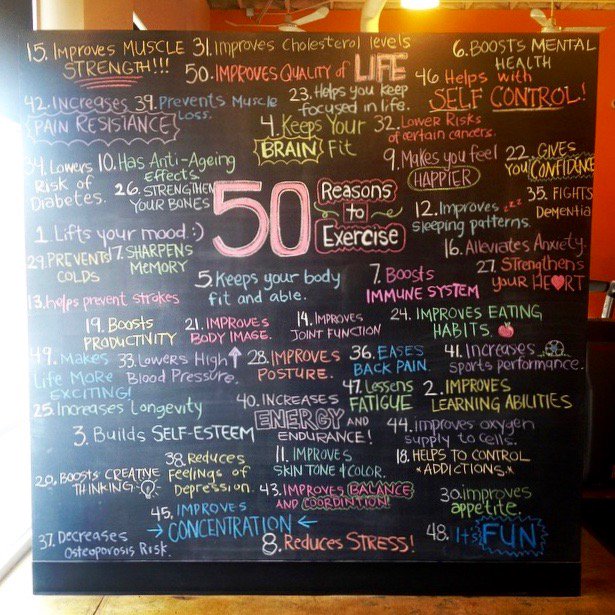 15. Improves MUSCLE
STRENGTH!!!
31. Improves Cholesterol levels
6. BOOSTS MENTAL
HEALTH
50. IMPROVES QUALITY of LIFE
46 Helps with
SELF CONTROL!
42. Increases
PAIN RESISTANCE
39. Prevents Muscle
Loss.
23. Helps you keep
focused in life.
4. Keeps Your
BRAIN Fit
32. Lower Risks
of certain cancers.
34. Lowers
Risk of
Diabetes.
10. Has Anti-Ageing
effects.
9. Makes you feel
HAPPIER
22. GIVES
YOU CONFIDENCE
26. STRENGTHEN
YOUR BONES
50 Reasons
to
Exercise
35. FIGHTS
DEMENTIA
12. Improves zzz
sleeping patterns.
1. Lifts your mood :)
29. PREVENTS
COLDS
17. SHARPENS
MEMORY
16. Alleviates Anxiety.
5. Keeps your body
fit and able.
7. Boosts
IMMUNE SYSTEM
27. Strengthens
your HEART
13. helps prevent strokes
19. Boosts
PRODUCTIVITY
21. IMPROVES
BODY IMAGE.
14. IMPROVES
JOINT FUNCTION
24. IMPROVES EATING
HABITS.
49. Makes
life MORE
EXCITING!
33. Lowers High
Blood Pressure.
28. IMPROVES
POSTURE.
36. EASES
BACK PAIN
41. Increases
sports performance.
25. Increases Longevity
40. INCREASES
ENERGY AND
ENDURANCE!
47. Lessens
FATIGUE
2. IMPROVES
LEARNING ABILITIES
3. Builds SELF-ESTEEM
44. improves oxygen
supply to cells.
20. BOOSTS CREATIVE
THINKING-
38. Reduces
Feelings of
Depression.
11. IMPROVES
SKIN TONE & COLOR.
18. HELPS TO CONTROL
*ADDICTIONS.*
43. IMPROVES BALANCE
AND COORDINTION!
30. improves
appetite.
45. IMPROVES
→ CONCENTRATION ←
37. Decreases
Osteoporosis Risk.
8. Reduces STRESS!
48. It's FUN